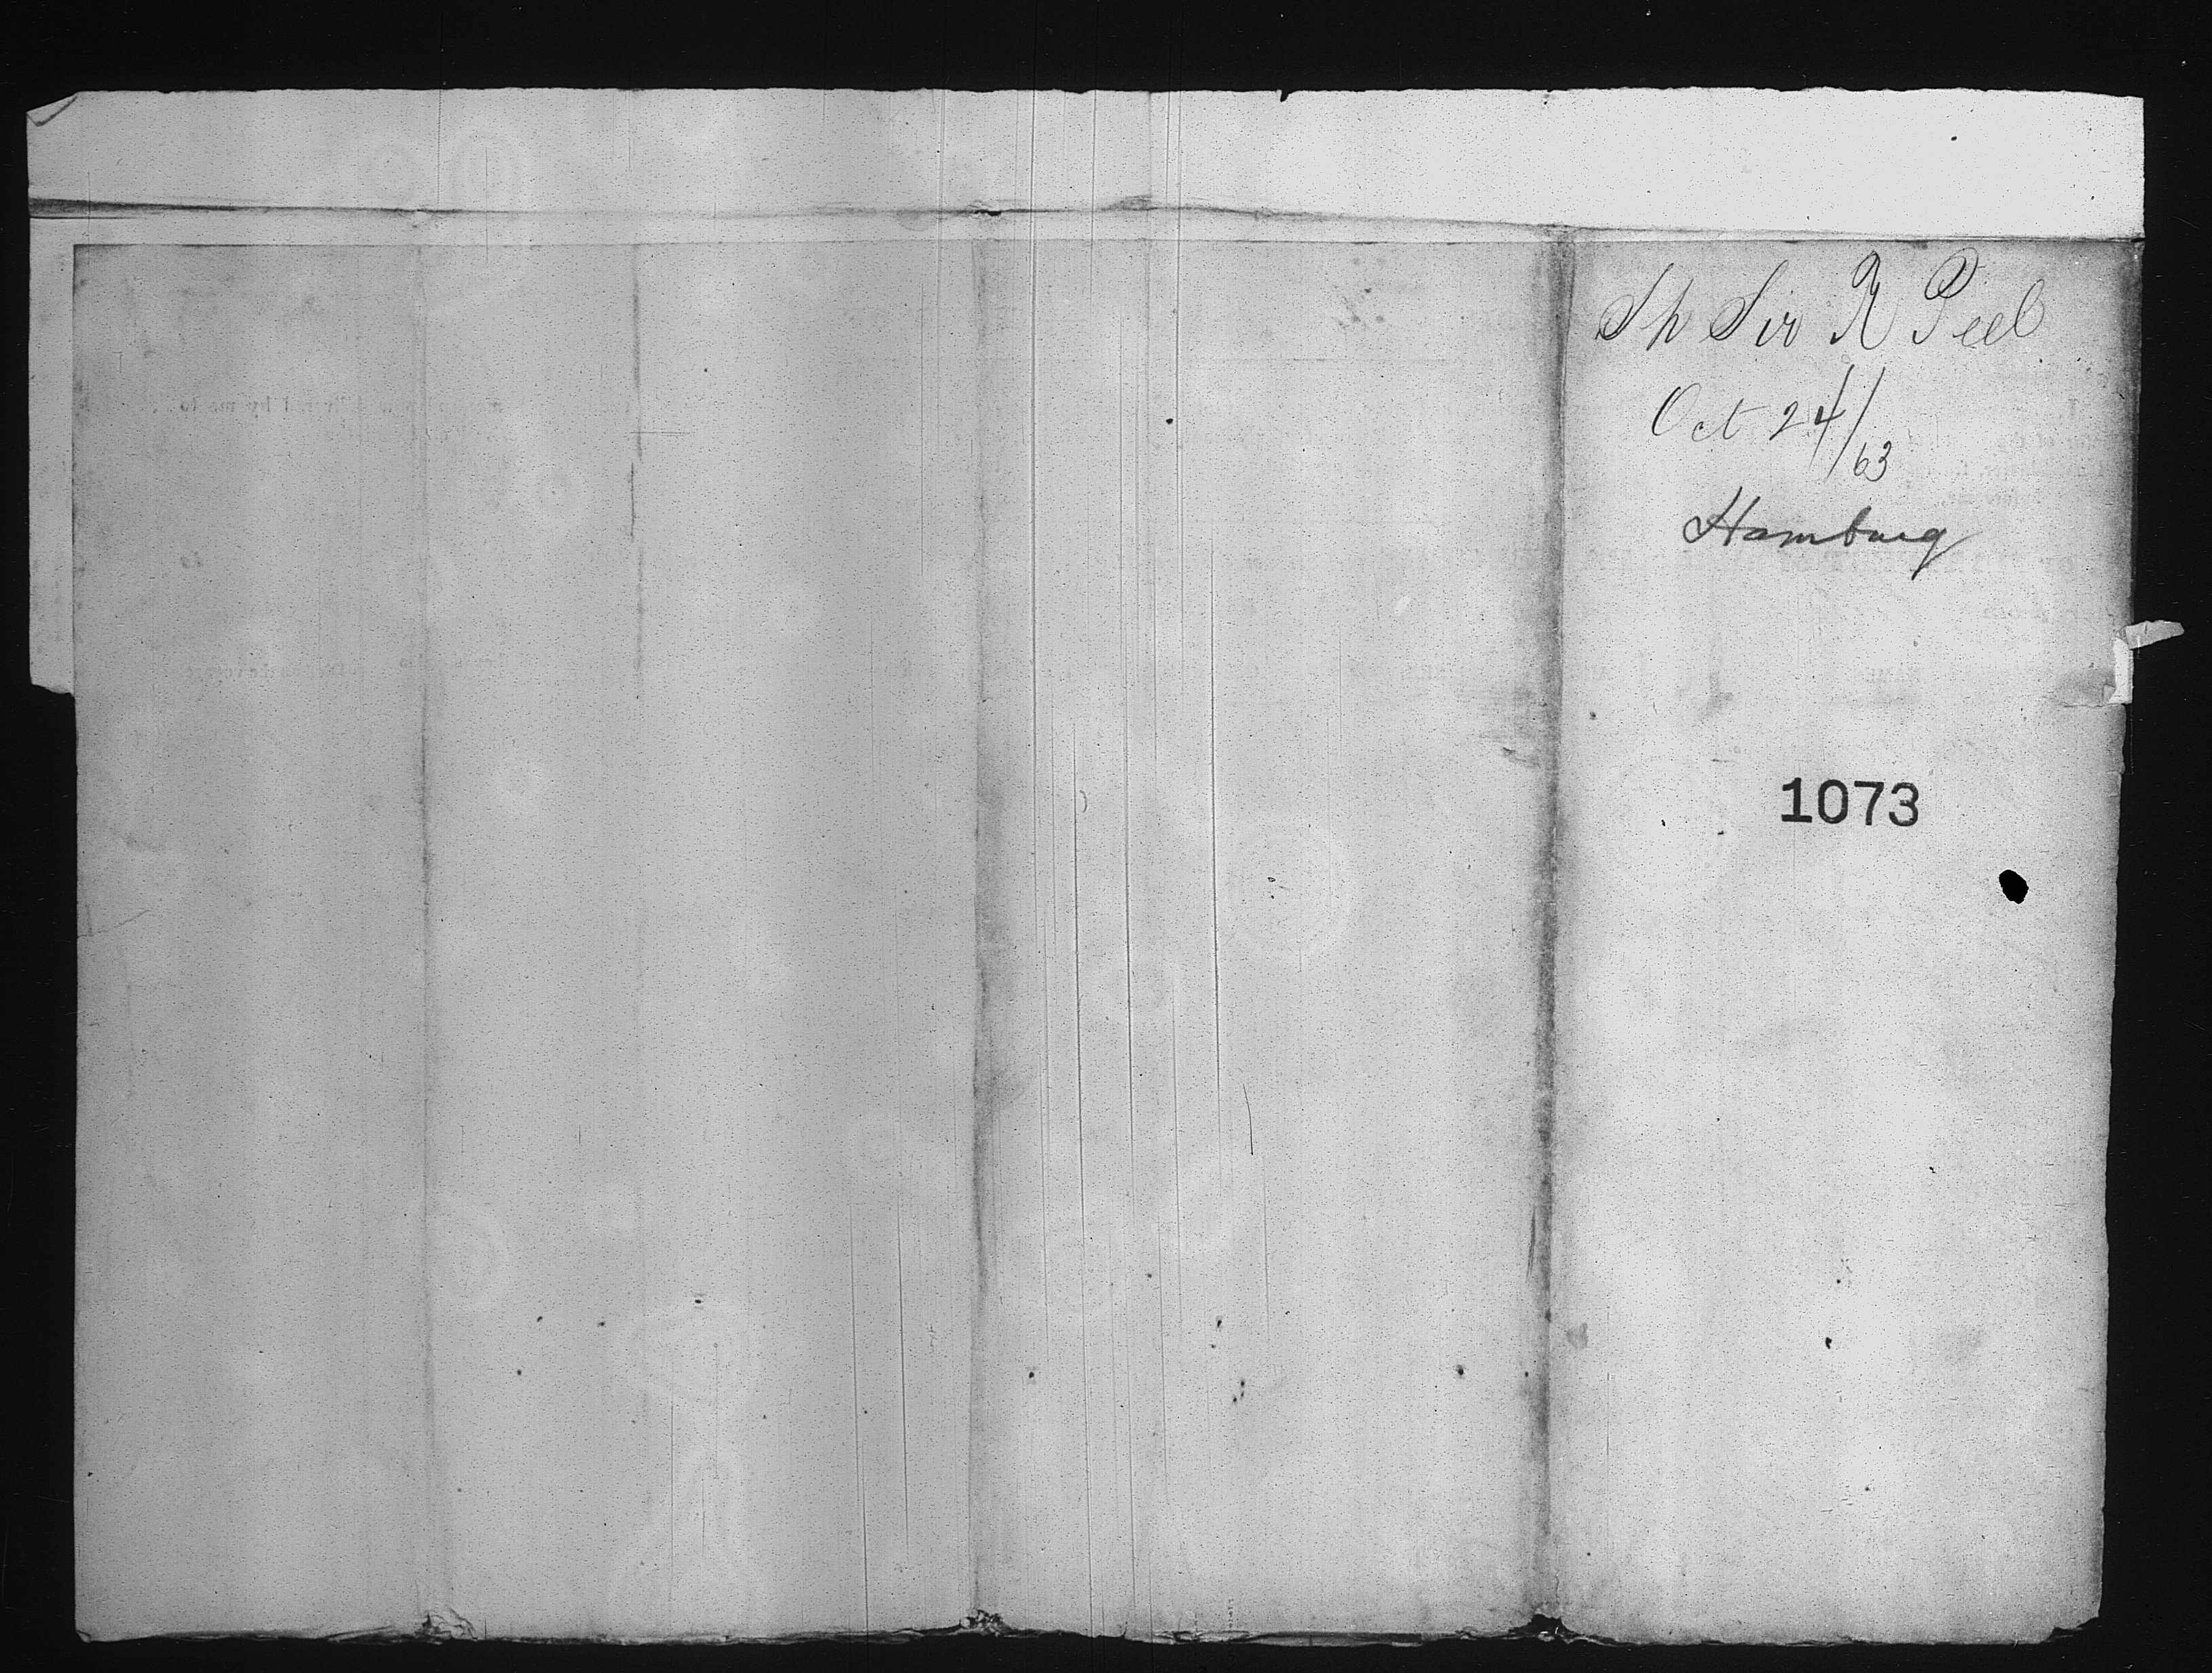 Sh Sir R Peel
Oct 24/63
Hamburg
1073